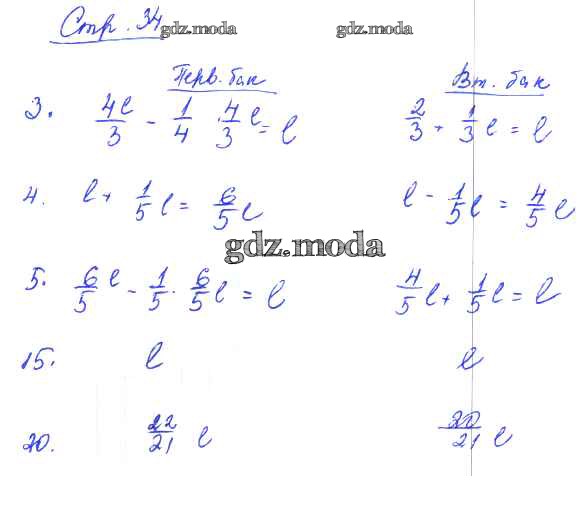 Стр. 34
gdz.moda gdz.moda
Перв. бак Вт. бак
3. 4ℓ/3 - 1/4 · 4/3 ℓ = ℓ 2/3 + 1/3 ℓ = ℓ
4. ℓ + 1/5 ℓ = 6/5 ℓ ℓ - 1/5 ℓ = 4/5 ℓ
gdz.moda
5. 6/5 ℓ - 1/5 · 6/5 ℓ = ℓ 4/5 ℓ + 1/5 ℓ = ℓ
15. ℓ ℓ
20. 22/21 ℓ 20/21 ℓ